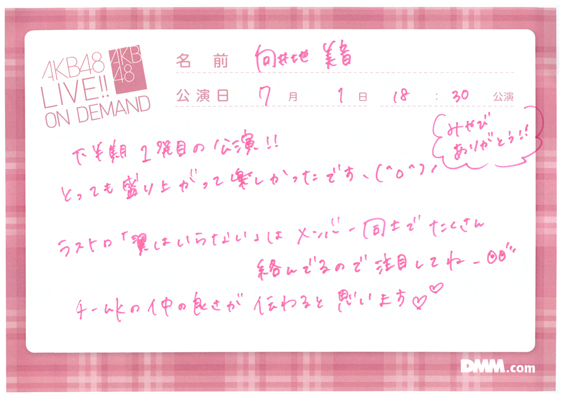 AKB48
LIVE!!
ON DEMAND
AKB
48
名前 向井地 美音
公演日 7月1日 18:30 公演
みやび
ありがとう!!
下半期1発目の公演!!
とっても盛り上がって楽しかったです、(^o^)ノ
ラストの「翼はいらない」は メンバー同士でたくさん
絡んでるので注目してね_
チームKの仲の良さが 伝わると思います♡♡
DMM.com